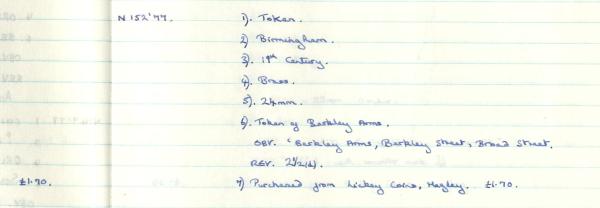 N 152'77. 1). Token.
2) Birmingham.
3). 19th Century.
4). Brass.
5). 24mm.
6). Token of Barkley Arms.
OBV. 'Barkley Arms, Barkley Street, Broad Street.
REV. 2½(d).
£1.70. 7) Purchased from Lickey Coins, Hagley. £1.70.